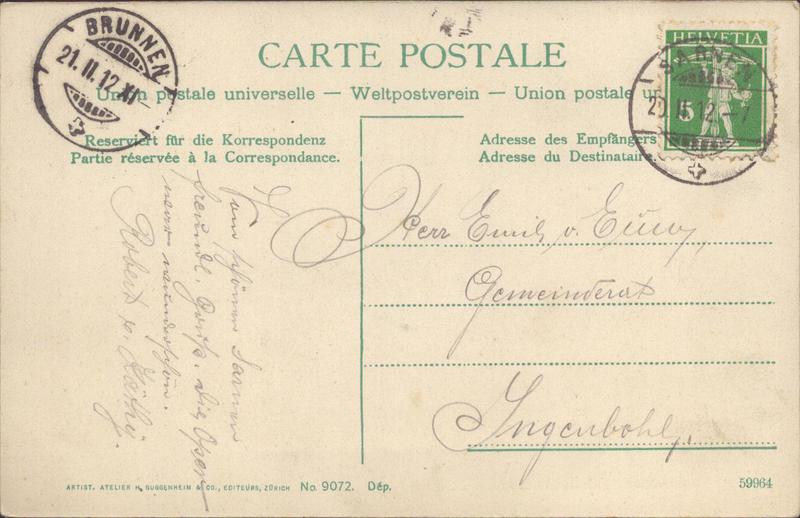 BRUNNEN
21.II.12.XI-
CARTE POSTALE
HELVETIA
5
SARNEN
20.II.12.-7
Union postale universelle — Weltpostverein — Union postale un
Reserviert für die Korrespondenz
Partie réservée à la Correspondance.
Adresse des Empfängers
Adresse du Destinataire.
Vom schönen Sarnen
freundl. Gruß. Die Oper
war wunderschön.
Robert u. Käthy.
Herr Emil v. Euw,
Gemeinderat
Ingenbohl.
ARTIST. ATELIER H. GUGGENHEIM & CO., EDITEURS, ZÜRICH No. 9072. Dép.
59964